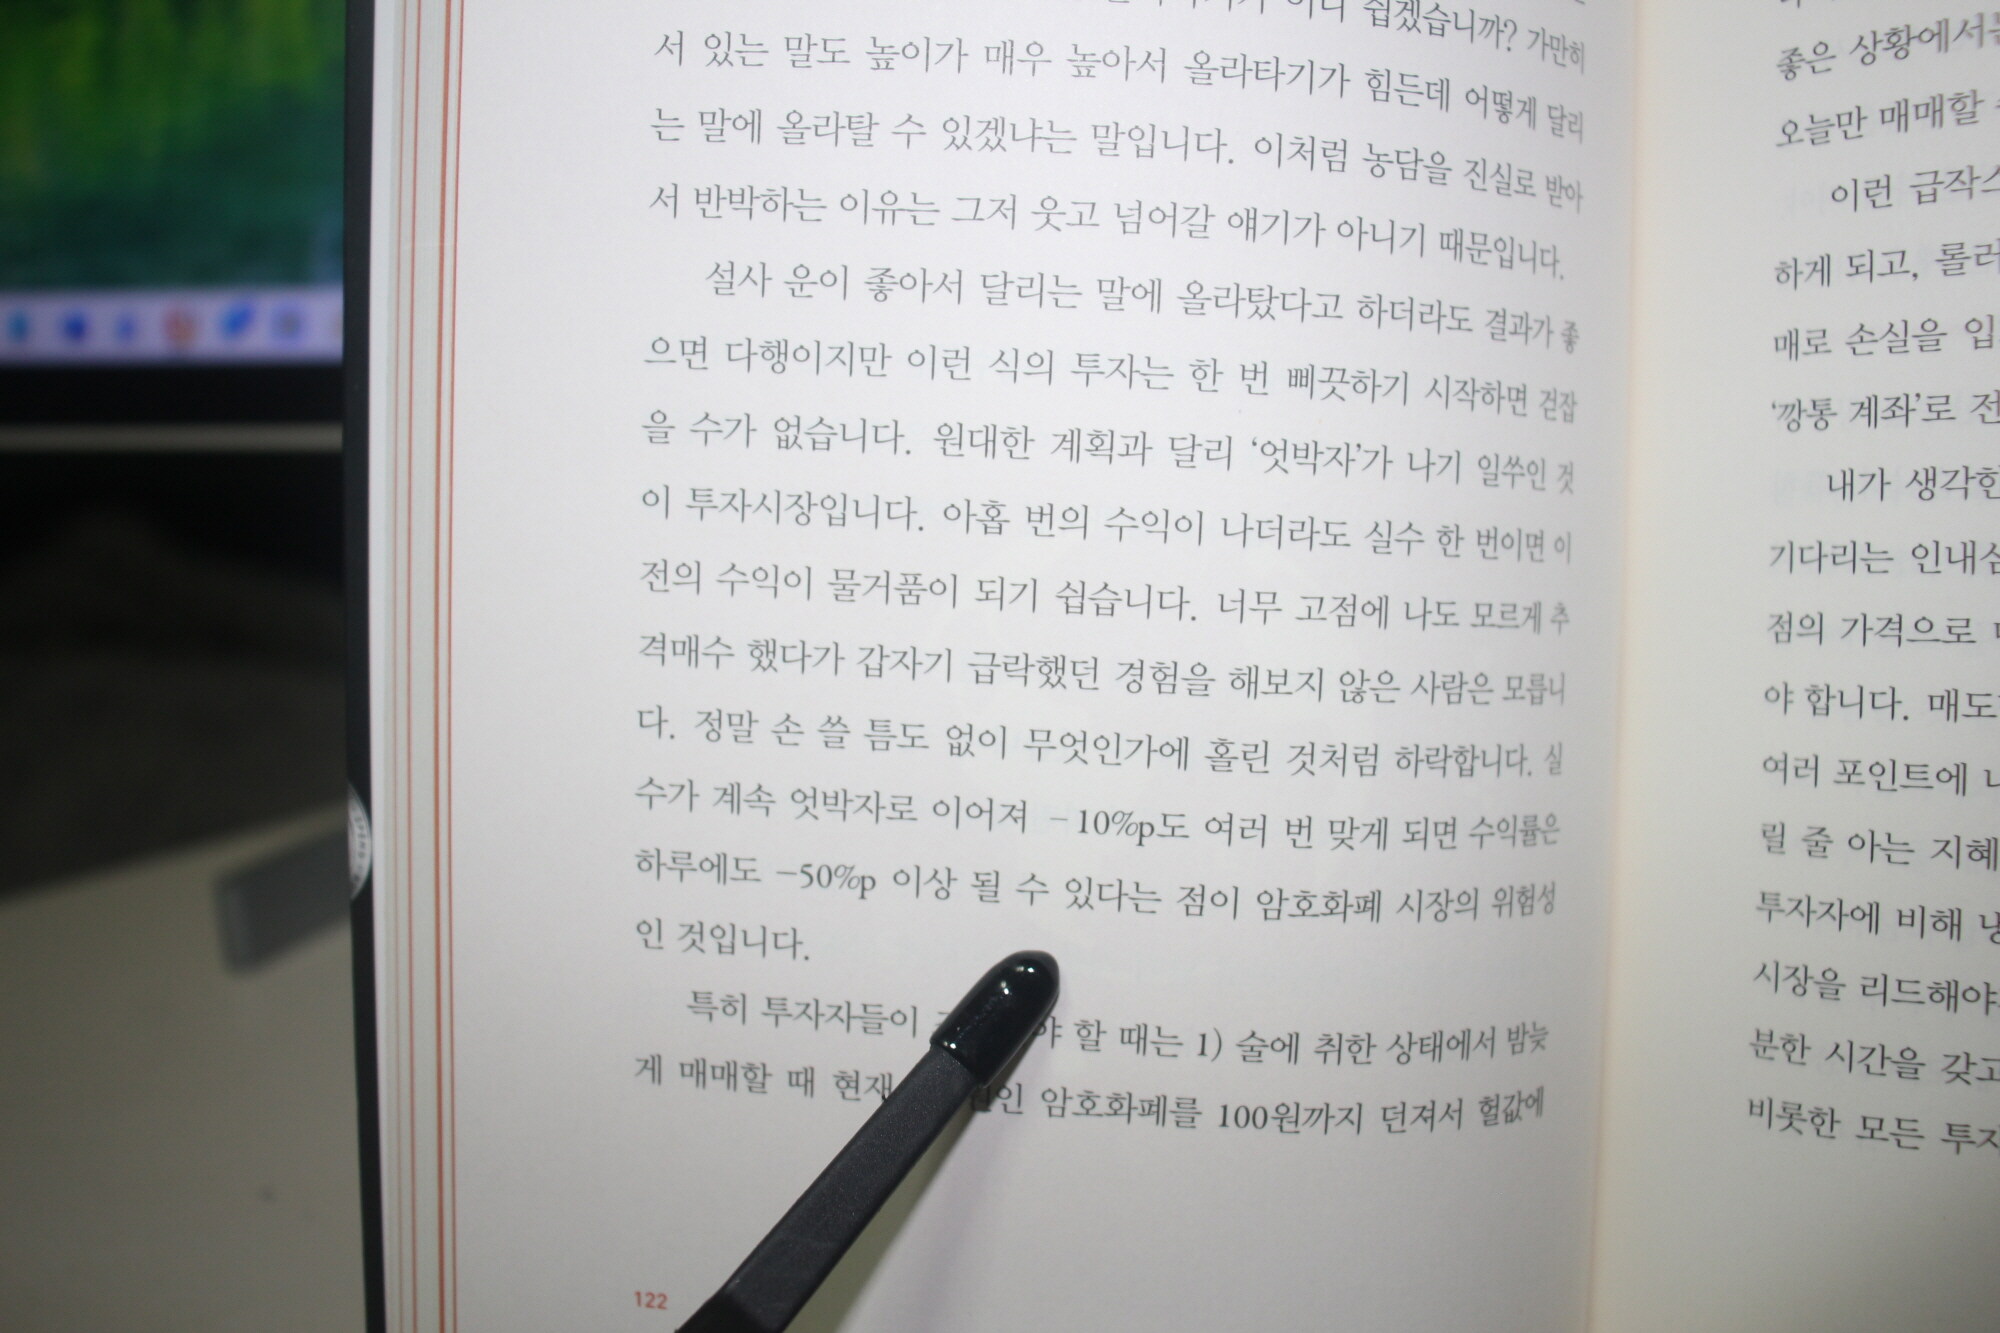 쉽겠습니까? 가만히
서 있는 말도 높이가 매우 높아서 올라타기가 힘든데 어떻게 달리
는 말에 올라탈 수 있겠냐는 말입니다. 이처럼 농담을 진실로 받아
서 반박하는 이유는 그저 웃고 넘어갈 얘기가 아니기 때문입니다.
설사 운이 좋아서 달리는 말에 올라탔다고 하더라도 결과가 좋
으면 다행이지만 이런 식의 투자는 한 번 삐끗하기 시작하면 걷잡
을 수가 없습니다. 원대한 계획과 달리 ‘엇박자’가 나기 일쑤인 것
이 투자시장입니다. 아홉 번의 수익이 나더라도 실수 한 번이면 이
전의 수익이 물거품이 되기 쉽습니다. 너무 고점에 나도 모르게 추
격매수 했다가 갑자기 급락했던 경험을 해보지 않은 사람은 모릅니
다. 정말 손 쓸 틈도 없이 무엇인가에 홀린 것처럼 하락합니다. 실
수가 계속 엇박자로 이어져 -10%p도 여러 번 맞게 되면 수익률은
하루에도 -50%p 이상 될 수 있다는 점이 암호화폐 시장의 위험성
인 것입니다.
특히 투자자들이 할 때는 1) 술에 취한 상태에서 밤늦
게 매매할 때 현재 암호화폐를 100원까지 던져서 헐값에
122
좋은 상황에서는
오늘만 매매할
이런 급작스
하게 되고, 롤러
매로 손실을 입
‘깡통 계좌’로 전
내가 생각한
기다리는 인내심
점의 가격으로
야 합니다. 매도
여러 포인트에
릴 줄 아는 지혜
투자자에 비해
시장을 리드해야
분한 시간을 갖고
비롯한 모든 투자